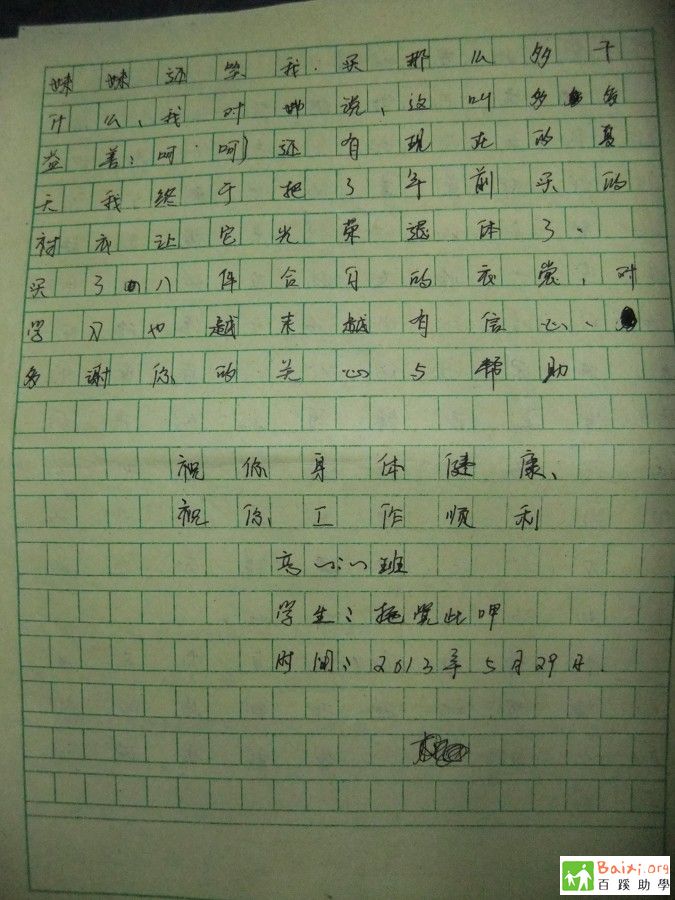 妹妹还笑我.买那么多干
什么,我对她说,这叫多多
益善;呵呵)还有现在的夏
天我终于把了年前买的
衬衣让它光荣退休了.
买了八件合身的衣裳,对
学习也越来越有信心、
多谢你的关心与帮助
祝你身体健康、
祝你、工作顺利
高班
学生:拖觉此呷
时间:2013年5月29日.
Baixi.org
百蹊助學